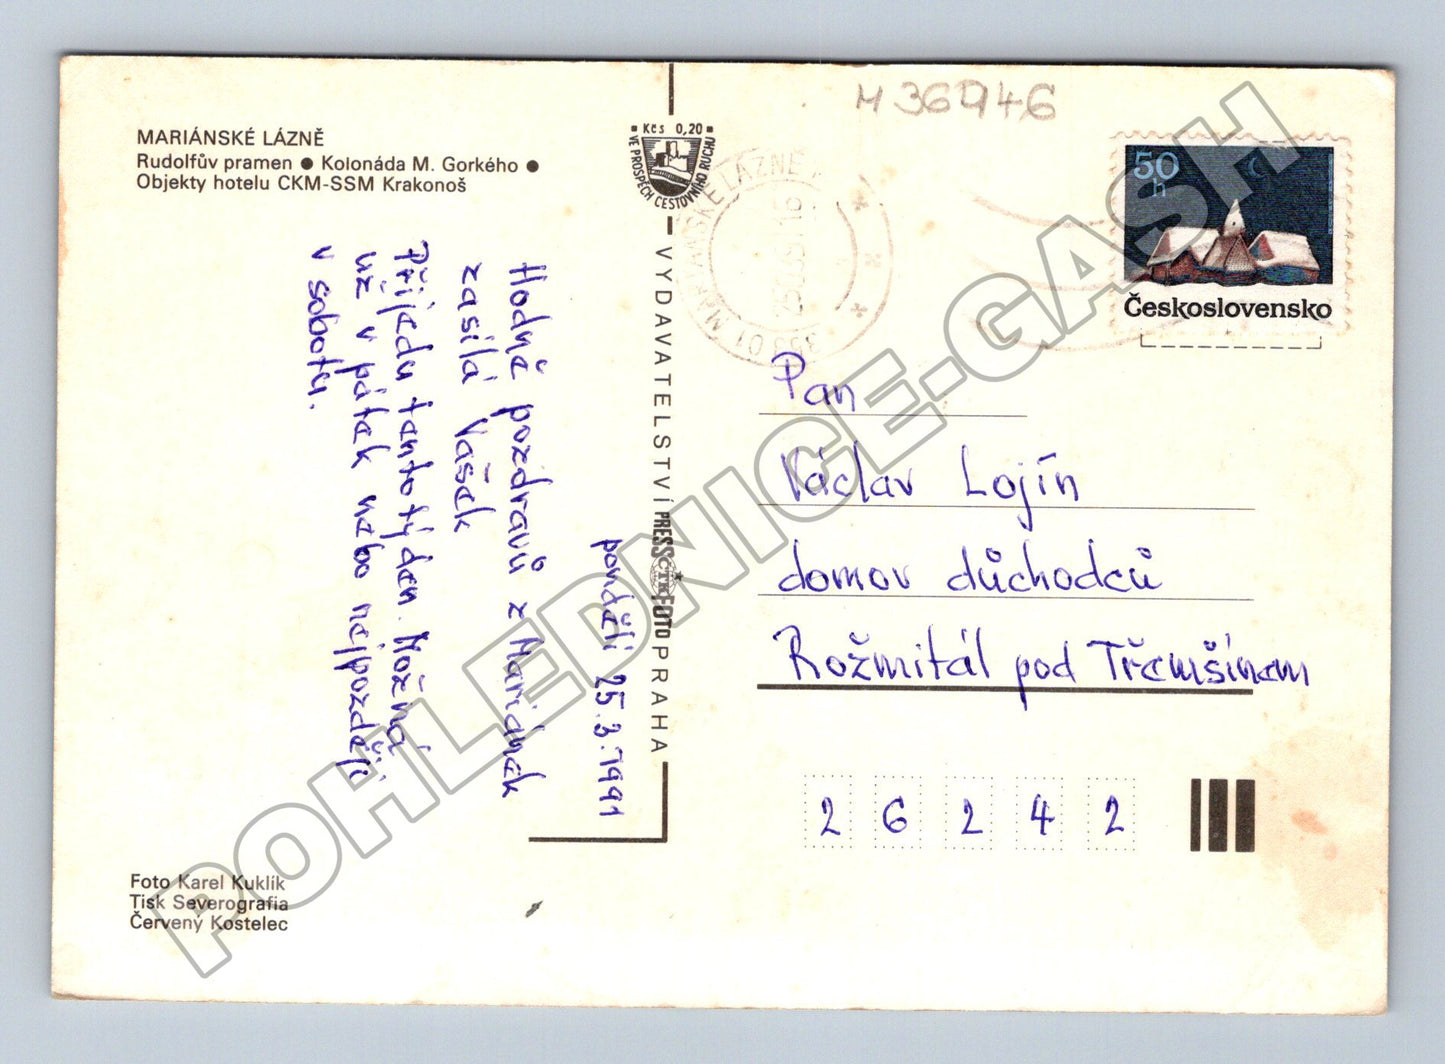 M 36946
MARIÁNSKÉ LÁZNĚ
Rudolfův pramen ● Kolonáda M. Gorkého ●
Objekty hotelu CKM-SSM Krakonoš
Kčs 0,20
VE PROSPĚCH CESTOVNÍHO RUCHU
50
h
Československo
353 01 MARIÁNSKÉ LÁZNĚ
VYDAVATELSTVÍ PRESSFOTO PRAHA
ČTK
pondělí 25.3.1991
Hodně pozdravů z Mariánek
zasílá Vašek
Přijedu tento týden. Možná
už v pátek nebo nejpozději
v sobotu.
Pan
Václav Lojín
domov důchodců
Rožmitál pod Třemšínem
26242
Foto Karel Kuklík
Tisk Severografia
Červený Kostelec
POHLEDNICE-GASH